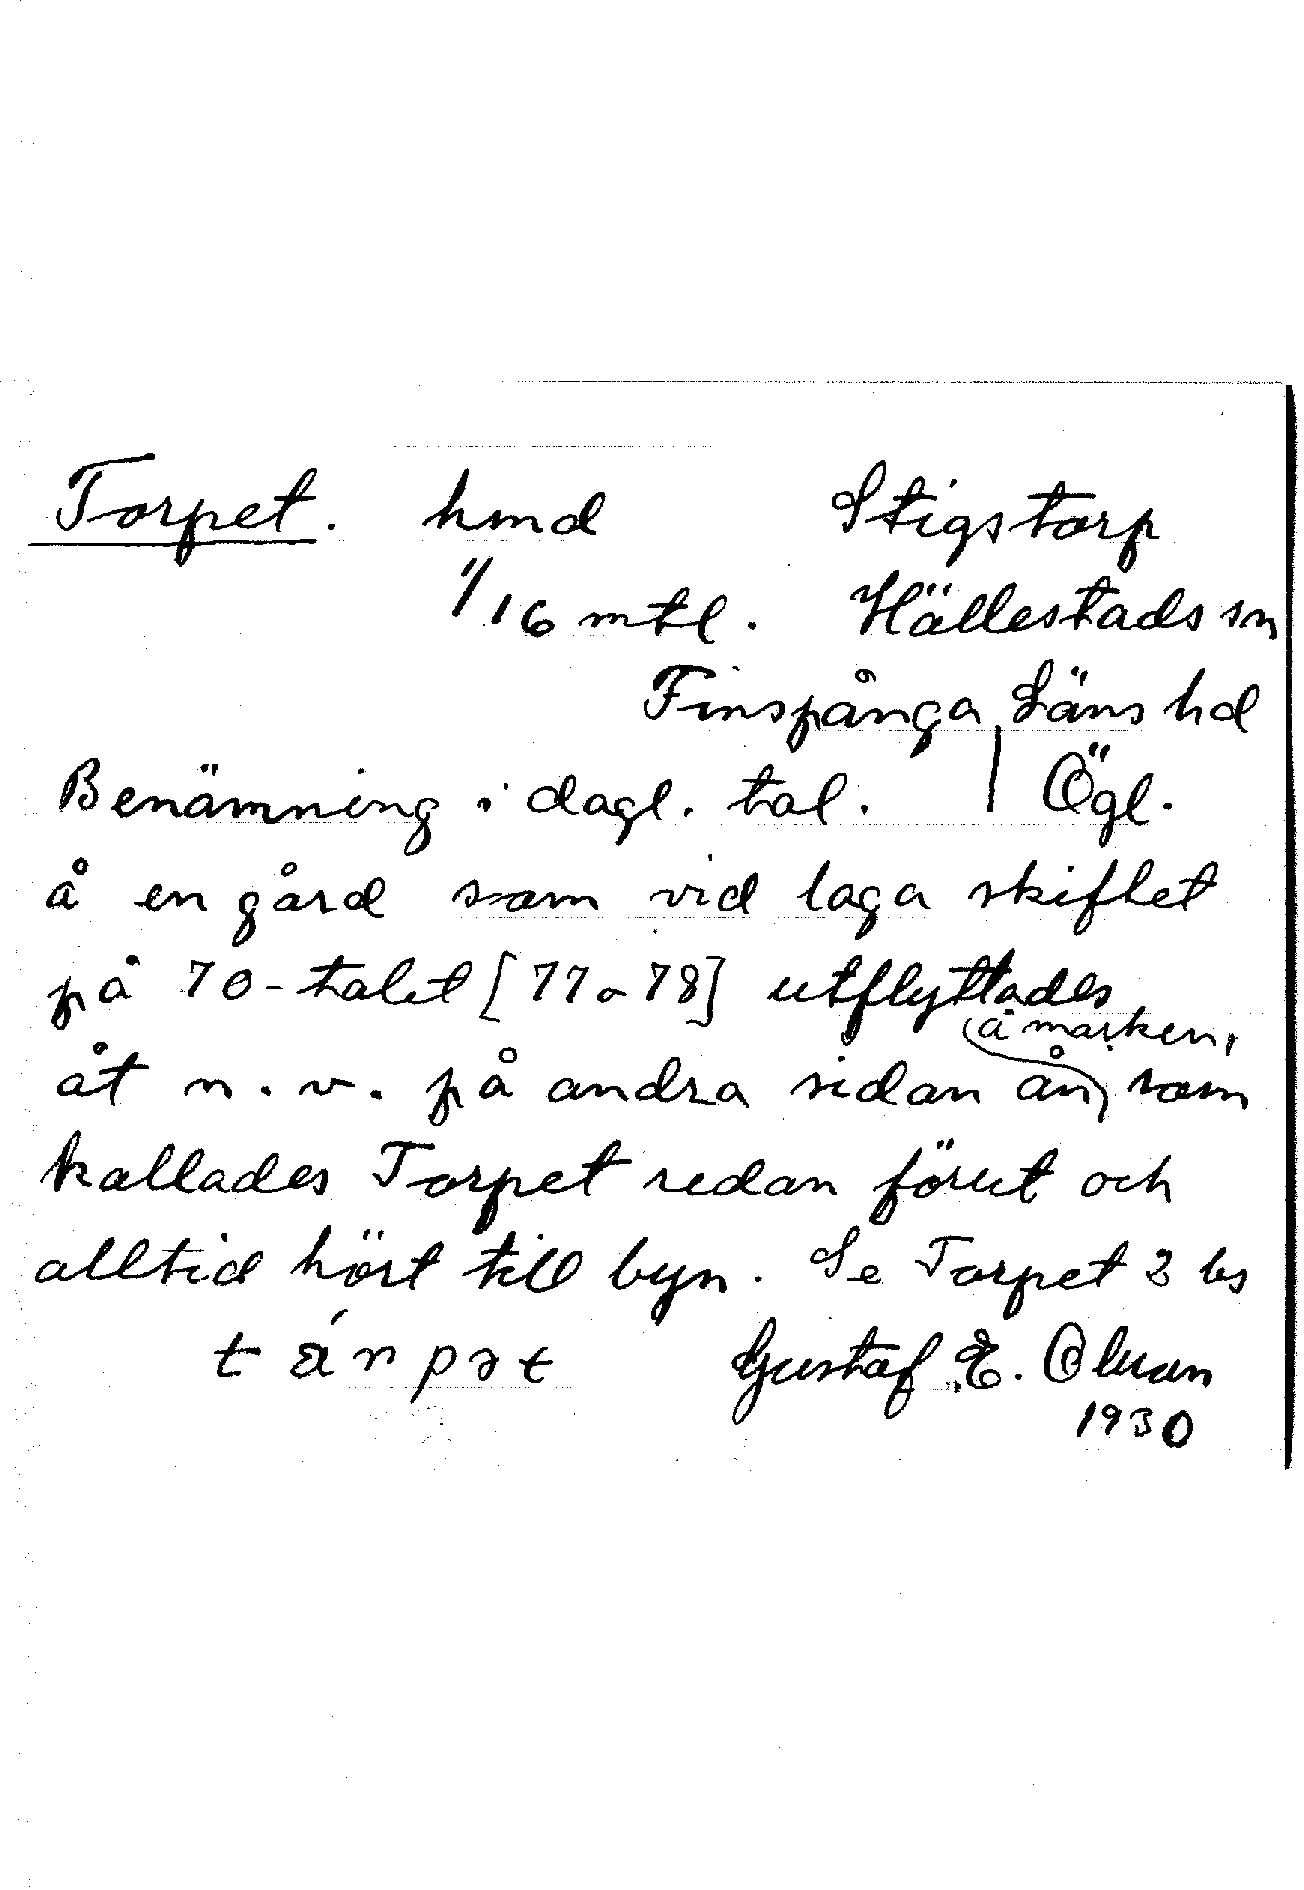 Torpet. hmd Stigstorp
1/16 mtl. Hällestads sn
Finspånga Läns hd
Benämning i dagl. tal. | Ögl.
å en gård som vid laga skiftet
på 70-talet [77 o 78] utflyttades
å marken,
åt n.v. på andra sidan ån, som
kallades Torpet redan förut och
alltid hört till byn. Se Torpet 2 bs
tárpət Gustaf E. Olsson
1930